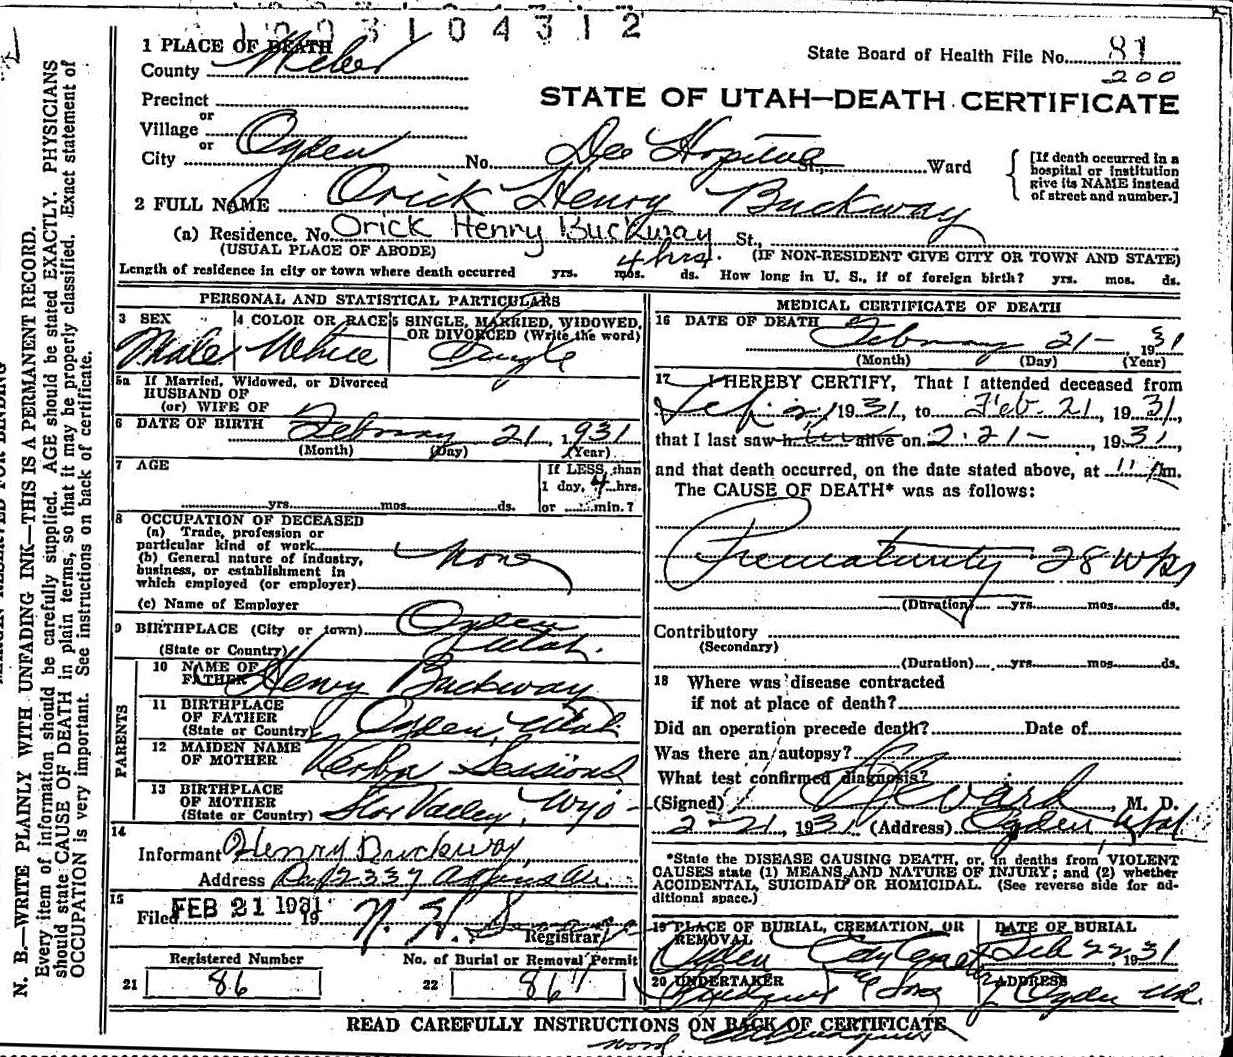 1 0 0 3 1 0 4 3 1 2
1 PLACE OF DEATH
County Weber
State Board of Health File No. 81
200
Precinct
or
Village
or
City Ogden No. Dee Hospital St., Ward
STATE OF UTAH—DEATH CERTIFICATE
[If death occurred in a hospital or institution give its NAME instead of street and number.]
2 FULL NAME Orick Henry Buckway
(a) Residence. No. Orick Henry Buckway St.,
(USUAL PLACE OF ABODE) (IF NON-RESIDENT GIVE CITY OR TOWN AND STATE)
4 hrs.
Length of residence in city or town where death occurred yrs. mos. ds. How long in U. S., if of foreign birth? yrs. mos. ds.
PERSONAL AND STATISTICAL PARTICULARS
3 SEX 4 COLOR OR RACE 5 SINGLE, MARRIED, WIDOWED, OR DIVORCED (Write the word)
Male White Single
5a If Married, Widowed, or Divorced
HUSBAND OF
(or) WIFE OF
6 DATE OF BIRTH February 21, 1931
(Month) (Day) (Year)
7 AGE If LESS than
1 day, 4 hrs.
yrs. mos. ds. or min.?
8 OCCUPATION OF DECEASED
(a) Trade, profession or
particular kind of work None
(b) General nature of industry,
business, or establishment in
which employed (or employer)
(c) Name of Employer
9 BIRTHPLACE (City or town) Ogden
(State or Country) Utah.
PARENTS
10 NAME OF FATHER Henry Buckway
11 BIRTHPLACE OF FATHER
(State or Country) Ogden, Utah
12 MAIDEN NAME OF MOTHER Verba Sessions
13 BIRTHPLACE OF MOTHER
(State or Country) Star Valley, Wyo
14
Informant Henry Buckway,
Address 2337
15
Filed FEB 21 1931 19
Registrar
Registered Number No. of Burial or Removal Permit
21 86 22 86
MEDICAL CERTIFICATE OF DEATH
16 DATE OF DEATH February 21- 1931
(Month) (Day) (Year)
17 I HEREBY CERTIFY, That I attended deceased from
1931, to Feb. 21, 1931,
that I last saw h alive on 2-21-, 1931,
and that death occurred, on the date stated above, at 11 Am.
The CAUSE OF DEATH* was as follows:
Prematurity 28 wks
(Duration) yrs. mos. ds.
Contributory
(Secondary)
(Duration) yrs. mos. ds.
18 Where was disease contracted
if not at place of death?
Did an operation precede death? Date of
Was there an autopsy?
What test confirmed diagnosis?
(Signed) , M. D.
2-21, 1931 (Address) Ogden Utah
*State the DISEASE CAUSING DEATH, or, in deaths from VIOLENT
CAUSES state (1) MEANS AND NATURE OF INJURY; and (2) whether
ACCIDENTAL, SUICIDAL OR HOMICIDAL. (See reverse side for ad-
ditional space.)
19 PLACE OF BURIAL, CREMATION, OR REMOVAL DATE OF BURIAL
Ogden City Feb 22 1931
20 UNDERTAKER ADDRESS
& Sons Ogden Ut.
READ CAREFULLY INSTRUCTIONS ON BACK OF CERTIFICATE
N. B.—WRITE PLAINLY WITH UNFADING INK—THIS IS A PERMANENT RECORD.
Every item of information should be carefully supplied. AGE should be stated EXACTLY. PHYSICIANS
should state CAUSE OF DEATH in plain terms, so that it may be properly classified. Exact statement of
OCCUPATION is very important. See instructions on back of certificate.